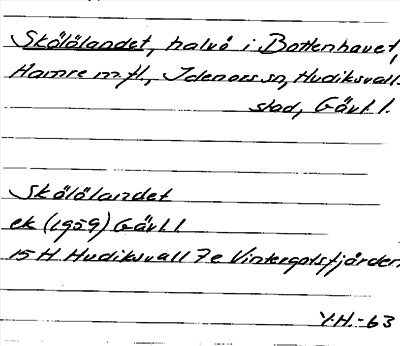 Skålölandet, halvö i Bottenhavet,
Hamre m fl, Idenors sn, Hudiksvalls
stad, Gävl. l.
Skålölandet
ek (1959) Gävl l
15 H Hudiksvall 7e Vintergatsfjärden
Y.H.-63